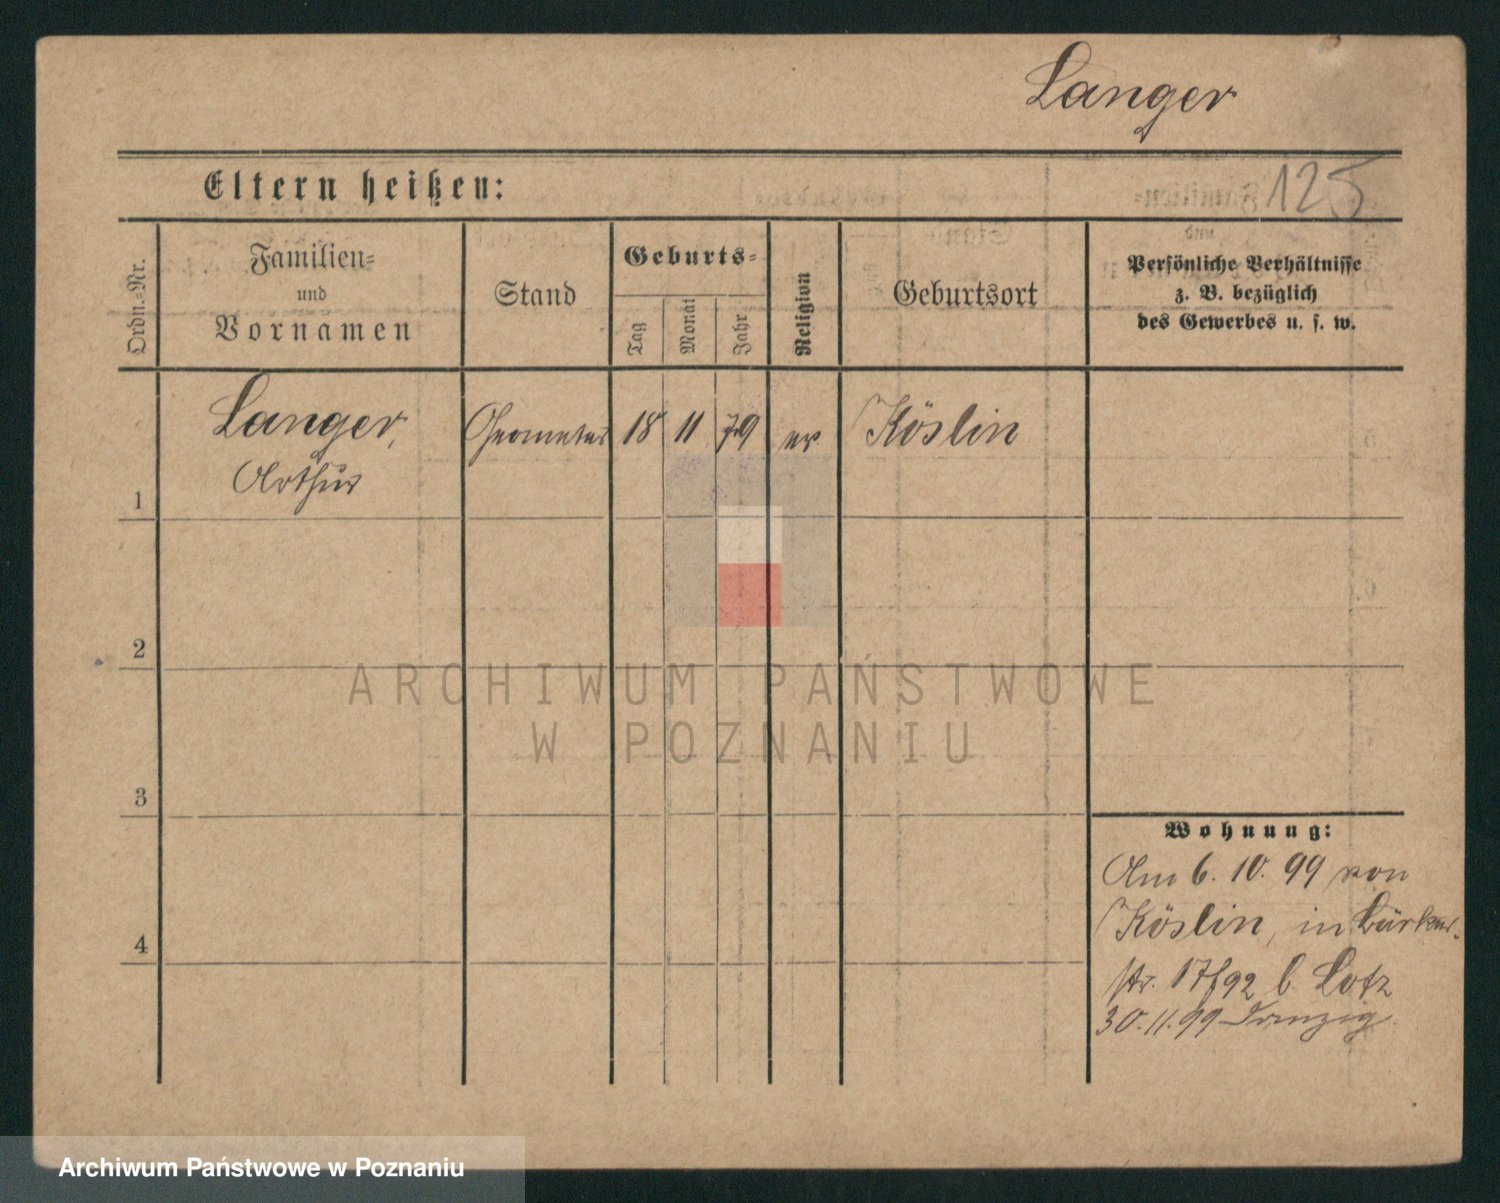 Langer
Eltern heißen:
125
Ordn.-Nr.
Familien-
und
Vornamen
Stand
Geburts-
Tag
Monat
Jahr
Religion
Geburtsort
Persönliche Verhältnisse
z. B. bezüglich
des Gewerbes u. s. w.
1
Langer,
Arthur
Geometer
18
11
79
ev
Köslin
2
3
4
ARCHIWUM PAŃSTWOWE
W POZNANIU
Wohnung:
Am 6. 10. 99 von
Köslin, in
str. 17/92 b. Lotz
30.11.99 Danzig
Archiwum Państwowe w Poznaniu